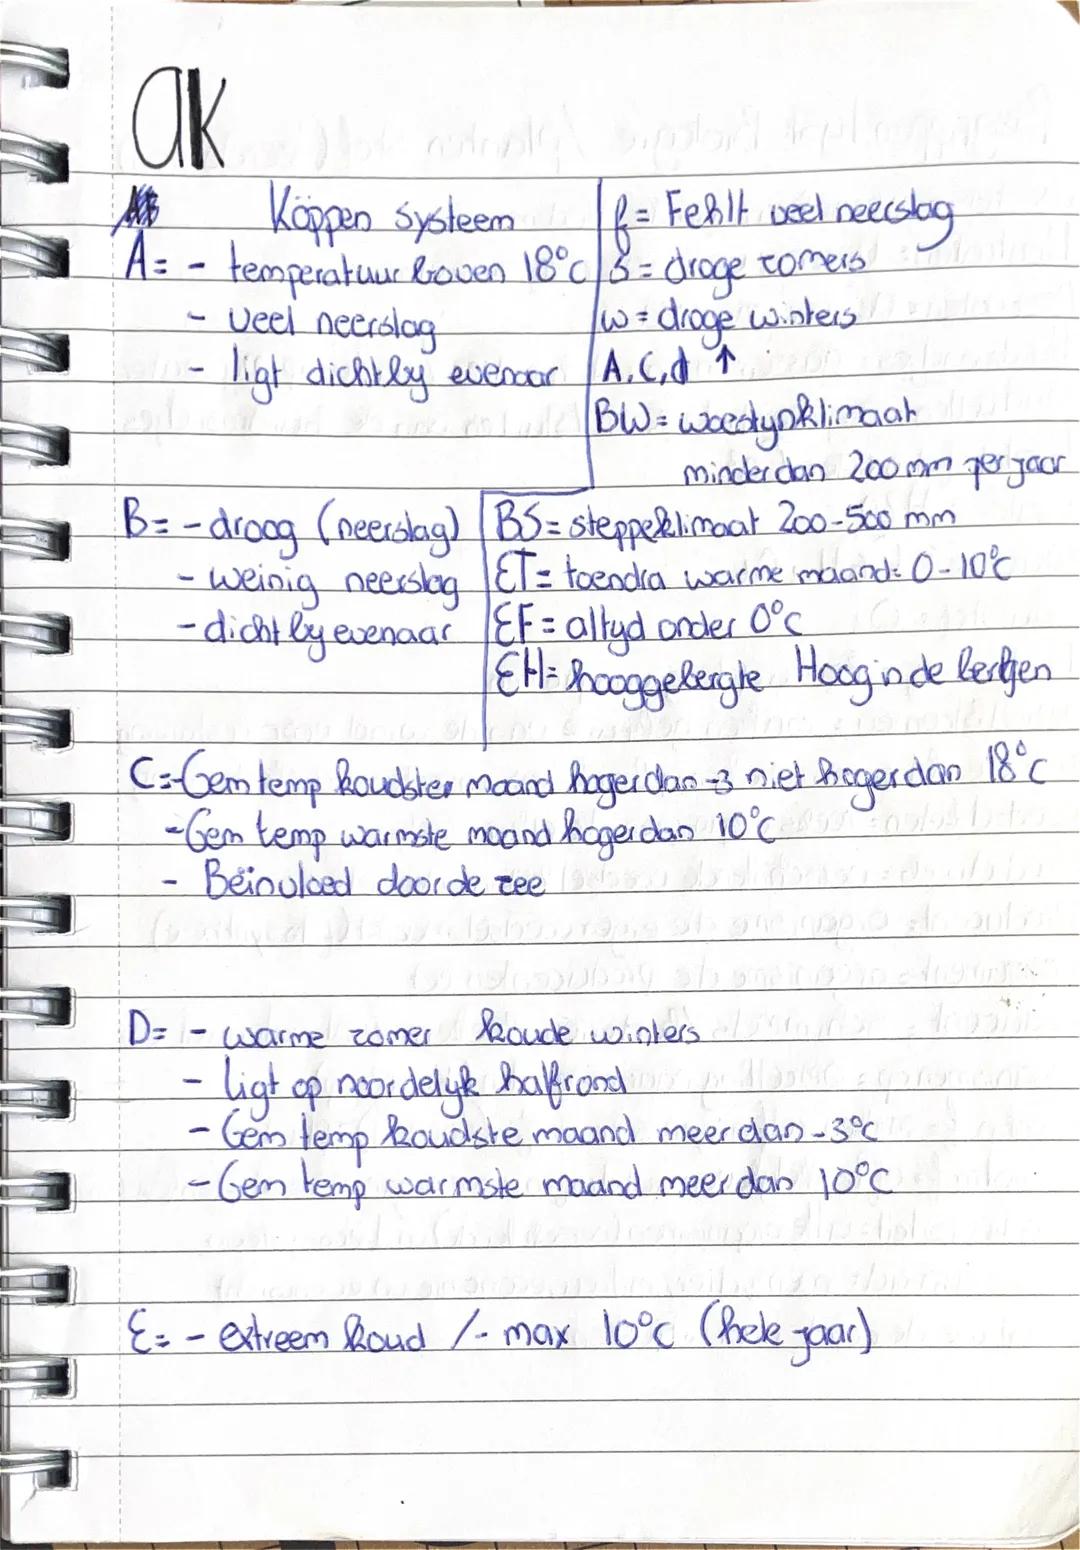 ak
Köppen systeem
A= - temperatuur boven 18°c
- veel neerslag
- ligt dichtby evenaar
f= Fehlt veel neerslag
s= droge zomers
w= droge winters
A,C,d ↑
BW= woestynklimaat
minder dan 200 mm per jaar
B= - droog (neerslag)
- weinig neerslag
- dicht by evenaar
BS= steppeklimaat 200-500 mm
ET= toendra warme maand: 0-10°c
EF= altyd onder 0°c
EH= hooggebergte Hoog in de bergen
C=-Gem temp koudster maand hoger dan -3 niet hoger dan 18°c
-Gem temp warmste maand hoger dan 10°c
- Beïnvloed door de zee
D= - warme zomer koude winters
- ligt op noordelyk halfrond
- Gem temp koudste maand meer dan -3°c
- Gem temp warmste maand meer dan 10°c
E= - extreem koud /- max 10°c (hele jaar)